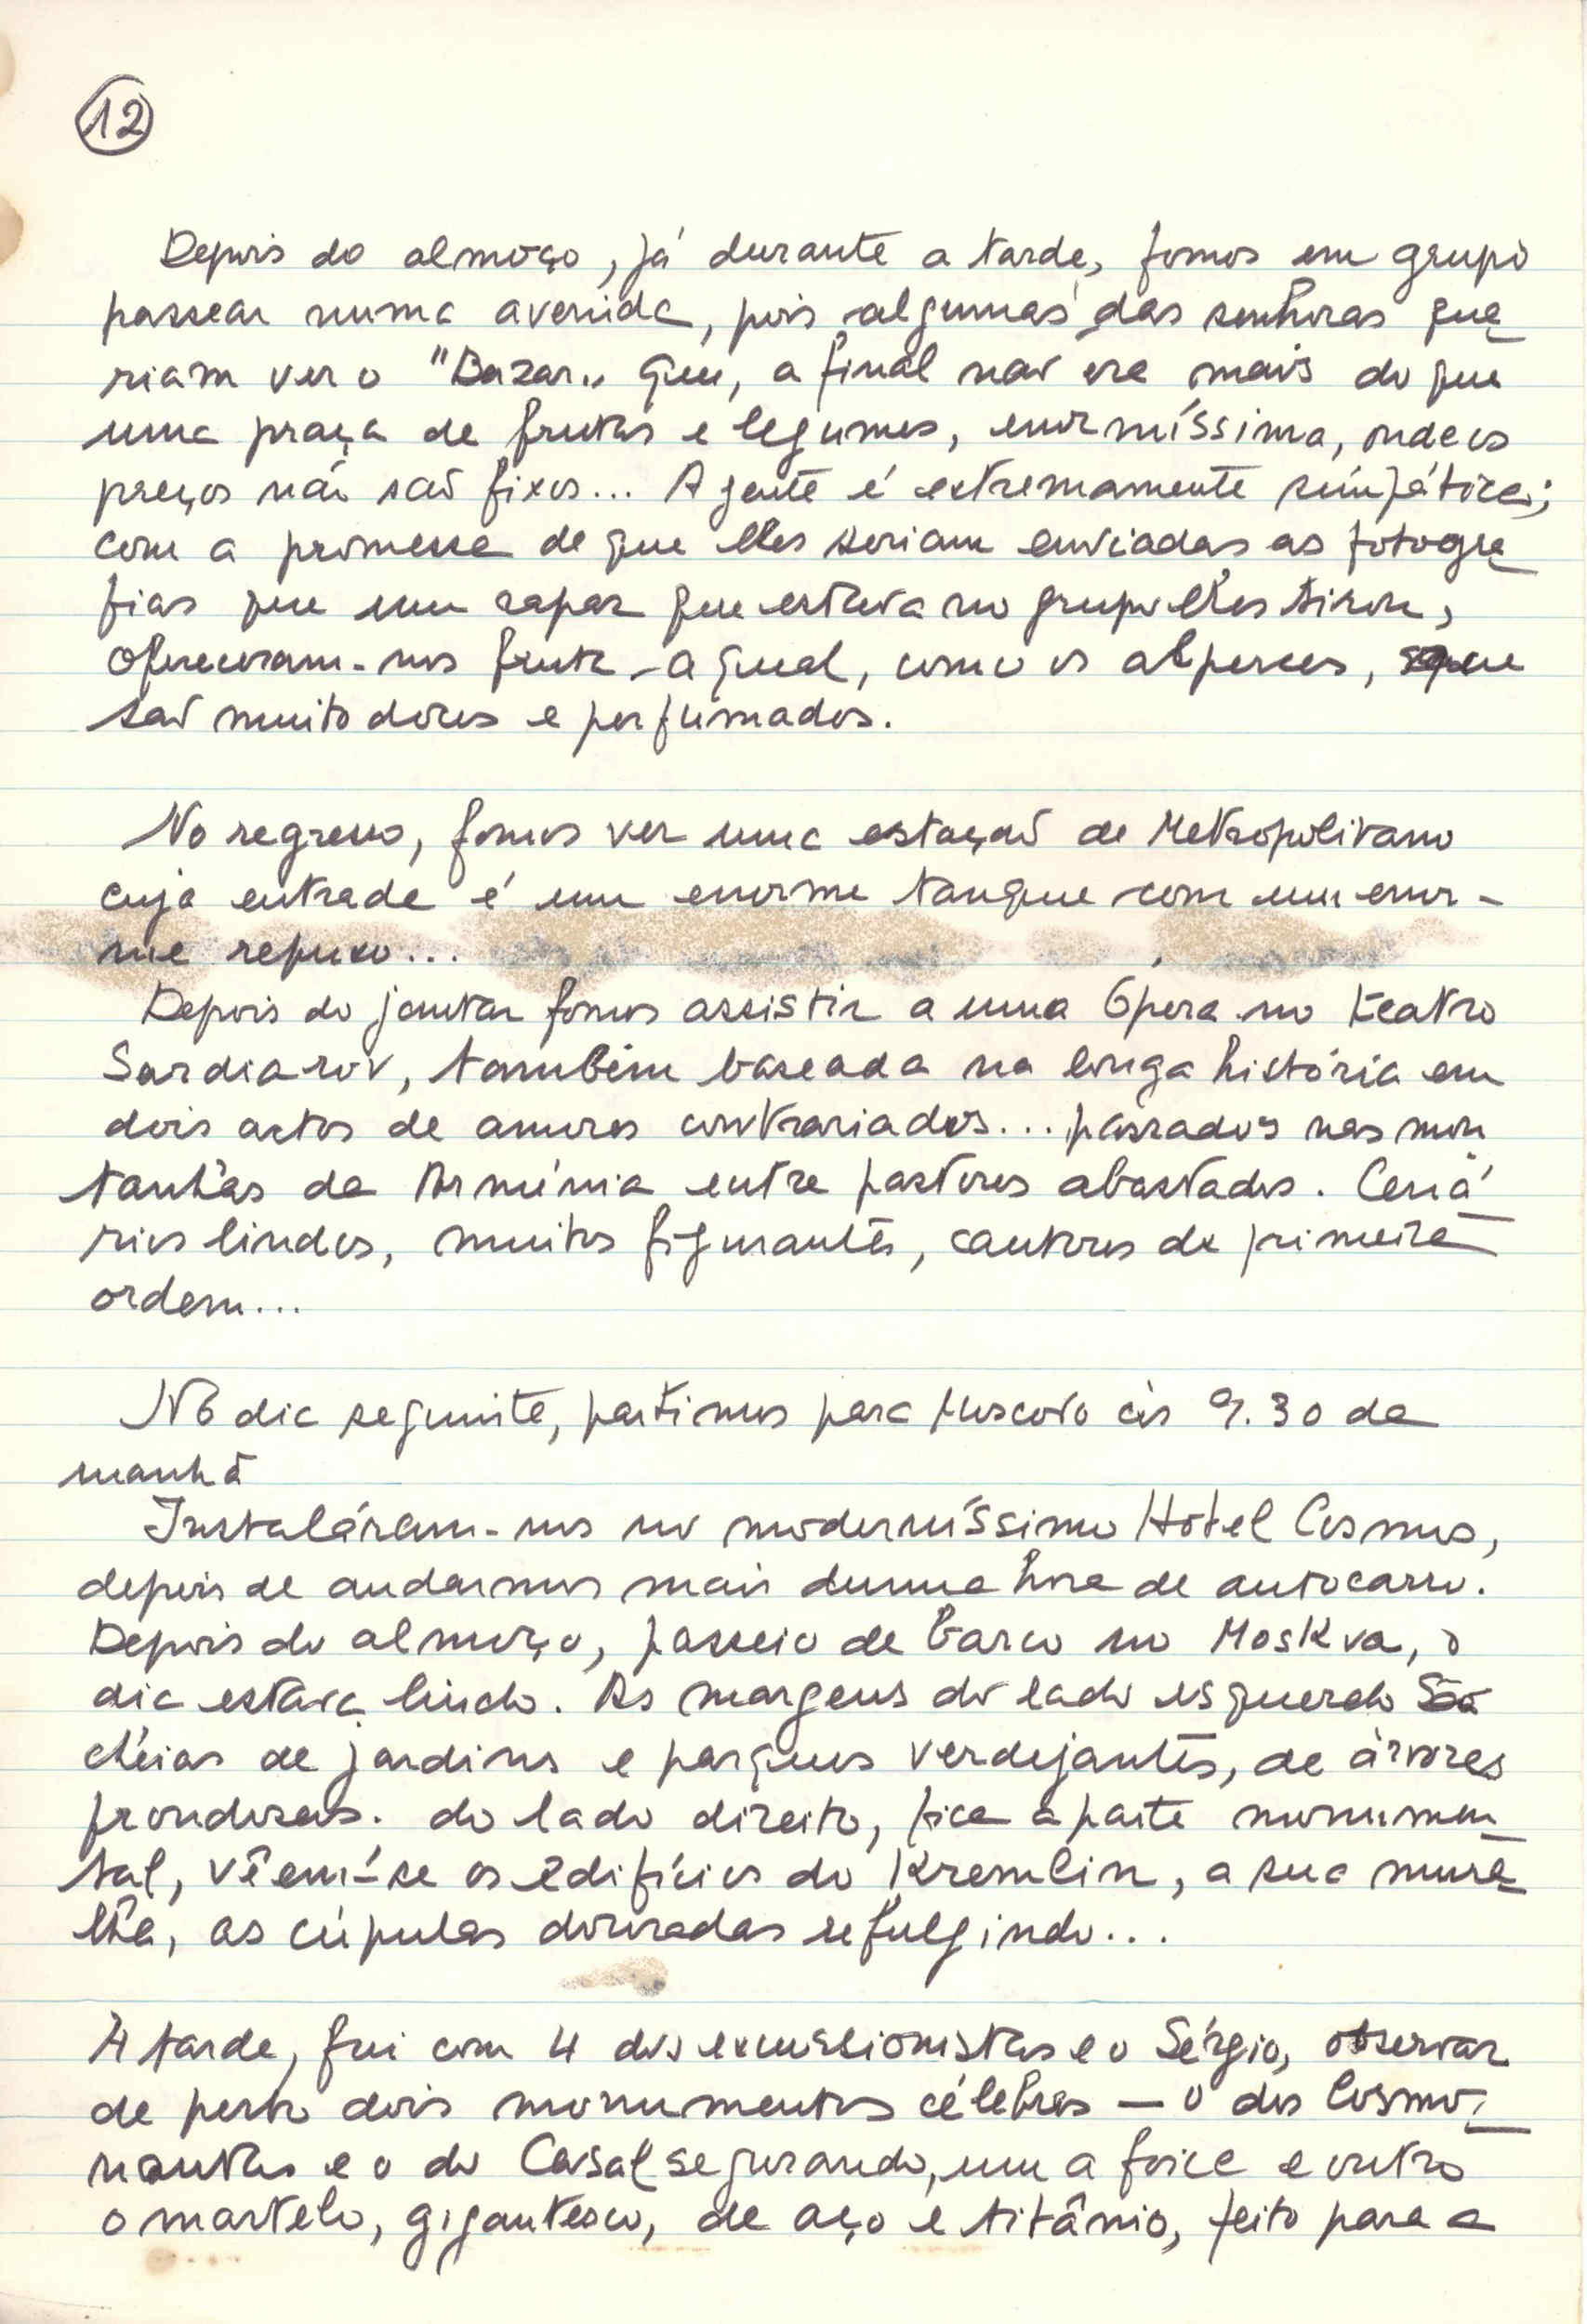 12
Depois do almoço, já durante a tarde, fomos em grupo
passear numa avenida, pois algumas das senhoras que
riam ver o "Bazar" que, afinal não era mais do que
uma praça de frutas e legumes, enormíssima, onde os
preços não são fixos... A gente é extremamente simpática;
com a promessa de que lhes seriam enviadas as fotogra
fias que um rapaz que estava no grupo lhes tirou,
ofereceram-nos fruta - a qual, como os alperces, que
são muito doces e perfumados.
No regresso, fomos ver uma estação de Metropolitano
cuja entrada é um enorme tanque com um enor-
me repuxo...
Depois do jantar fomos assistir a uma Ópera no teatro
Sardiarov, também baseada na longa história em
dois actos de amores contrariados... passados nas mon
tanhas da Arménia entre pastores abastados. Cená
rios lindos, muitos figurantes, cantores de primeira
ordem...
No dia seguinte, partimos para Moscovo às 9.30 da
manhã
Instaláram-nos no moderníssimo Hotel Cosmos,
depois de andarmos mais duma hora de autocarro.
Depois do almoço, passeio de barco no Moskva, o
dia estava lindo. As margens do lado esquerdo são
cheias de jardins e parques verdejantes, de árvores
frondosas. do lado direito, fica a parte monumen
tal, vêem-se os edifícios do Kremlin, a sua mura
lha, as cúpulas douradas refulgindo...
À tarde, fui com 4 dos excursionistas e o Sérgio, observar
de perto dois monumentos célebres — o dos Cosmo-
nautas e o do Casal segurando, um a foice e outro
o martelo, gigantesco, de aço e titânio, feito para a